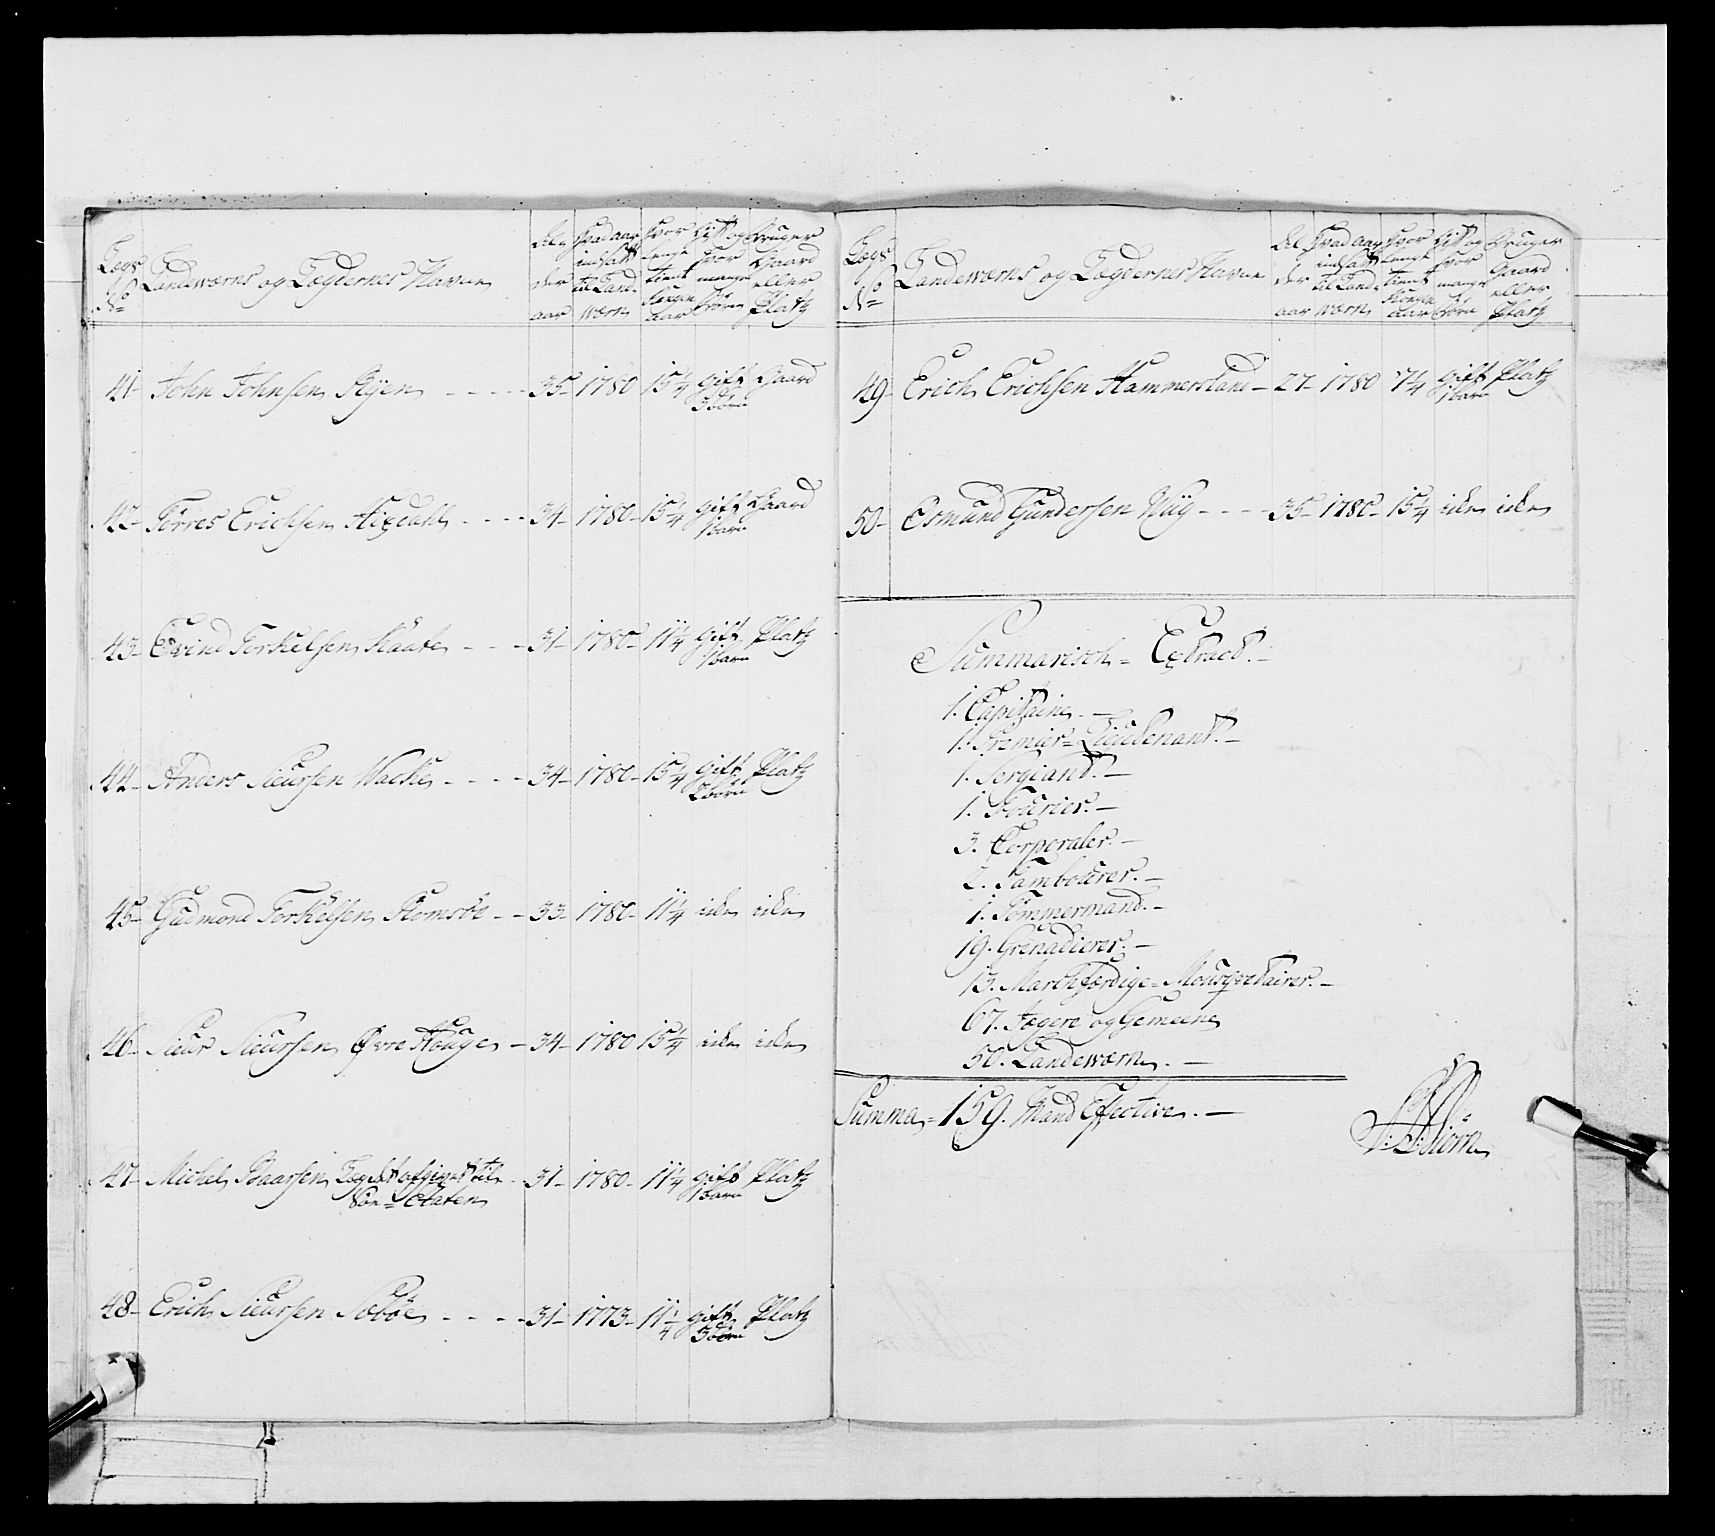 Lægs No
Landeværns og Lægdernes Navne
Al, der aar
Hvad aar indsatt til Landværn
Hvor lenge tient Kongen aar
Gift og hvor mange Børn
Bruger Gaard eller Platz
41 John Johnsen Ryen - 35 - 1780 15 1/4 gift 3 børn Gaard
42 Torres Erichsen Aigdahl - 34 - 1780 - 15 1/4 gift 1 barn Gaard
43 - Evind Torkelsen Skaate - 31 - 1780 - 11 1/4 gift 1 barn Platz
44 - Anders Siursen Wacke - 34 - 1780 - 15 1/4 gift 2 børn Platz
45 - Gudmond Torkelsen Romsøe - 33 - 1780 - 11 1/4 iden iden
46 - Siur Siursen Øvre Houge - 34 - 1780 15 1/4 iden iden
47 - Michel Baarsen Legdet afgivet til Søe-Etaten - 31 - 1780 - 11 1/4 gift 1 barn Platz
48 - Erich Siursen Sæbøe - 31 - 1773 - 11 1/4 gift 3 børn Platz
Lægs No
Landeværns og Lægdernes Navne
Al der aar
Hvad aar indsatt til Landværn
Hvor lengt tient Kongen aar
Gift og hvor mange Børn
Bruger Gaard eller Platz
49 - Erich Erichsen Hammersland - 27 - 1780 7 1/4 gift 1 barn Platz
50 - Osmund Gundersen Wiig - 35 - 1780 - 15 1/4 iden iden
Summarisch = Extract. -
1. Capitaine. -
1. Premier = Lieutenant. -
1. Sergiant. -
1. Fourier. -
3. Corporaler. -
2. Tambourer. -
1. Tømmermand. -
19. Grenadierer. -
13. Marchfærdige = Mousqvetairer. -
67. Jægere og Gemeene
50. Landeværn. -
Summa = 159. Mand Effective. -